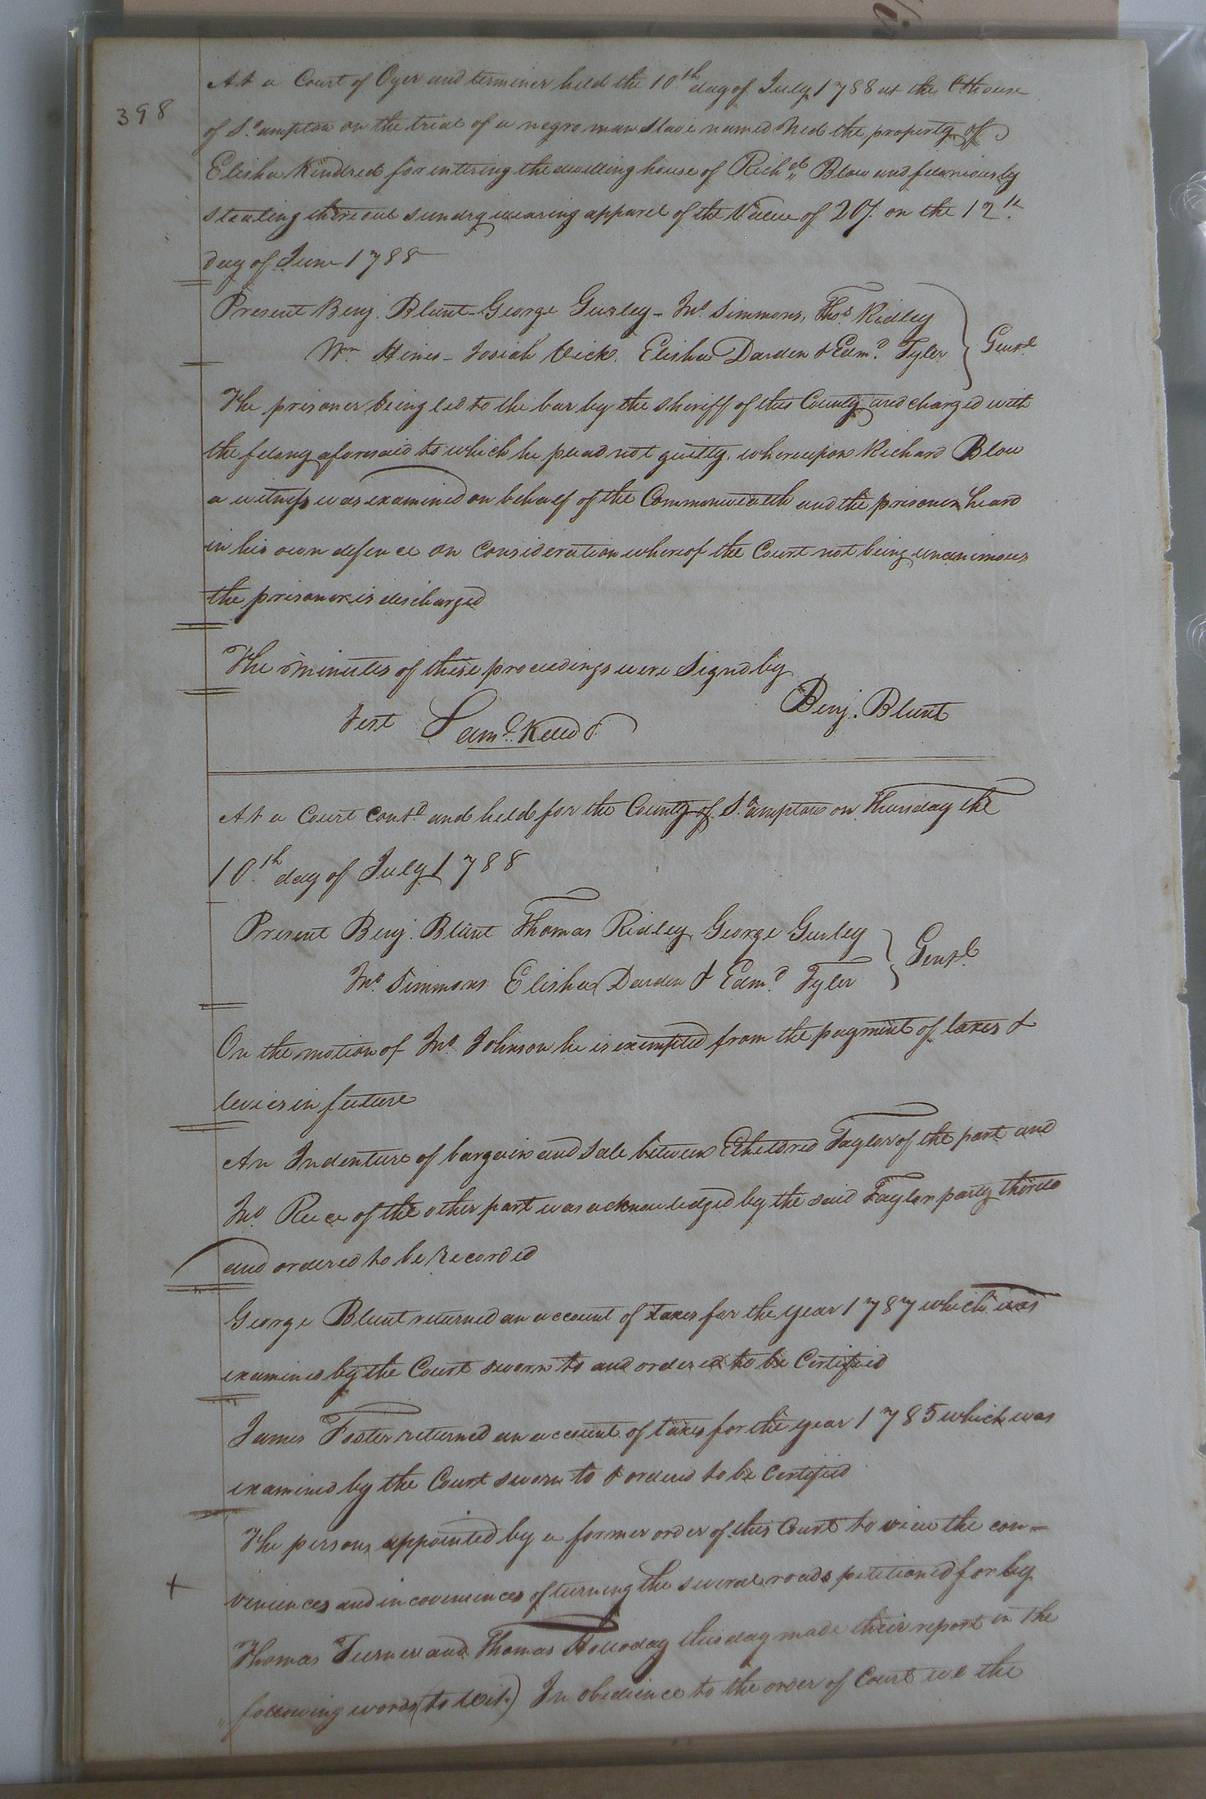 398
At a Court of Oyer and terminer held the 10th day of July 1788 at the CtHouse
of So.ampton on the trial of a negro man slave named Ned the property of
Elisha Kindred for entering the dwelling house of Richd. Blow and feloniously
stealing thereout sundry wearing apparel of the Value of 20/. on the 12th
day of June 1788
Present Benj. Blunt - George Gurley - Jno. Simmons, Thos. Ridley
Wm Hines - Josiah Vick. Elisha Darden & Edmd. Tyler } Gent.
The prisoner being led to the bar by the sheriff of this County and charged with
the felony aforesaid to which he plead not guilty, whereupon Richard Blow
a witness was examined on behalf of the Commonwealth and the prisoner heard
in his own defence on consideration whereof the Court not being unanimous
the prisoner is discharged
The minutes of these proceedings were Signd by
Benj. Blunt
Test Saml. Kello
At a Court contd. and held for the County of So.ampton on Thursday the
10th. day of July 1788
Present Benj. Blunt Thomas Ridley George Gurley
Jno. Simmons Elisha Darden & Edmd. Tyler } Gent.
On the motion of Jno. Johnson he is exempted from the payment of taxes &
levies in future
An Indenture of bargain and Sale between Etheldred Taylor of the part and
Jno Rice of the other part was acknowledged by the said Taylor party thereto
and ordered to be recorded
George Blunt returned an account of taxes for the year 1787 which was
examined by the Court sworn to and ordered to be Certified
James Foster returned an account of taxes for the year 1785 which was
examined by the Court sworn to & ordered to be Certified
The persons appointed by a former order of this Court to view the con-
viniences and incoveniences of turning the several roads petitioned for by
Thomas Turner and Thomas Holloday this day made their report in the
following words (to wit.) In obedience to the order of Court we the